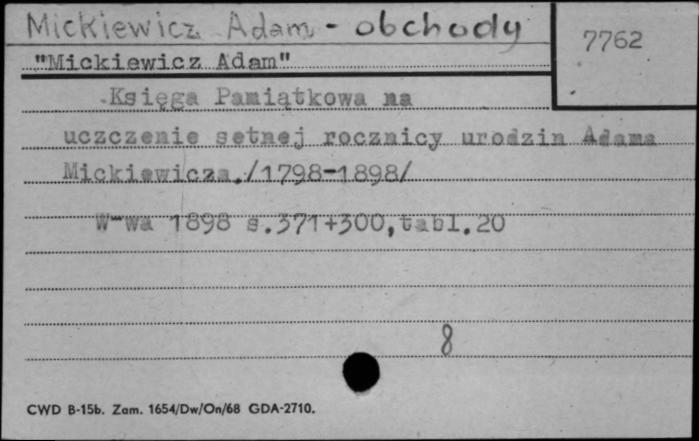 Mickiewicz Adam - obchody
7762
"Mickiewicz Adam"
Księga Pamiątkowa na
uczczenie setnej rocznicy urodzin Adama
Mickiewicza./1798-1898/
W-wa 1898 s.371+300,tabl.20
8
CWD B-15b. Zam. 1654/Dw/On/68 GDA-2710.